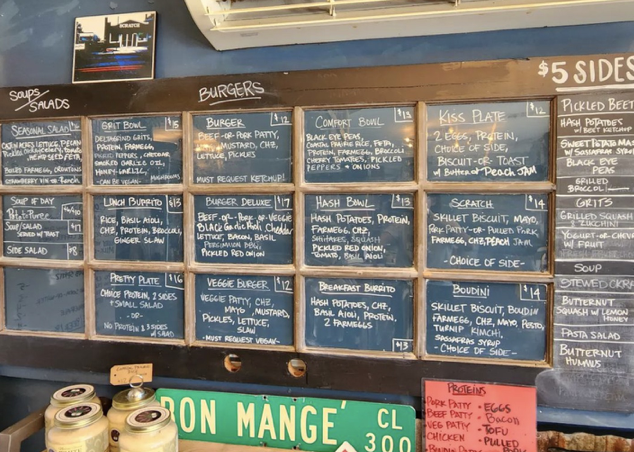 SCRATCH
SOUPS/
SALADS
BURGERS
$5 SIDES
SEASONAL SALAD
LETTUCE, PECAN
MEYER SEED FETA
BOILED FARMEGG, CROUTONS
STRAWBERRY
SOUP OF DAY
SOUP/SALAD $17
SERVED W/ TOAST
SIDE SALAD $8
GRIT BOWL $15
DELTAGRIND GRITS,
PROTEIN, FARMEGG,
CHEDDAR,
SMOKED GARLIC OIL,
HONEY GARLIC,
CAN BE VEGAN
LUNCH BURRITO $13
RICE, BASIL AIOLI,
CHZ, PROTEIN, BROCCOLI,
GINGER SLAW
PRETTY PLATE $16
CHOICE PROTEIN, 2 SIDES
+ SMALL SALAD
- OR -
NO PROTEIN & 3 SIDES
W/ SALAD
BURGER $12
BEEF-OR-PORK PATTY,
MUSTARD, CHZ,
LETTUCE, PICKLES
MUST REQUEST KETCHUP!
BURGER DELUXE $17
BEEF-OR-PORK-OR-VEGGIE
BLACK GARLIC AIOLI, Cheddar
LETTUCE, BACON, BASIL
PERCIMMON
PICKLED RED ONION
VEGGIE BURGER $12
VEGGIE PATTY, CHZ,
MAYO, MUSTARD,
PICKLES, LETTUCE,
SLAW
-MUST REQUEST VEGAN-
COMFORT BOWL $13
BLACK EYE PEAS,
COASTAL PRAIRIE RICE, FETA,
PROTEIN, FARMEGG, BROCCOLI
CHERRY TOMATOES, PICKLED
PEPPERS + ONIONS
HASH BOWL $13
HASH POTATOES, PROTEIN,
FARMEGG, CHZ,
SHIITAKES, SQUASH
PICKLED RED ONION,
TOMATO, BASIL AIOLI
BREAKFAST BURRITO
HASH POTATOES, CHZ,
BASIL AIOLI, PROTEIN,
2 FARMEGGS
$13
KISS PLATE $12
2 EGGS, PROTEIN,
CHOICE OF SIDE,
BISCUIT-OR-TOAST
w/ Butter or PEACH JAM
SCRATCH $14
SKILLET BISCUIT, MAYO,
PORK PATTY-OR-PULLED PORK,
FARMEGG, CHZ, PEACH JAM
-CHOICE OF SIDE-
BOUDINI $14
SKILLET BISCUIT, BOUDIN
FARMEGG, CHZ, MAYO, PESTO,
TURNIP KIMCHI,
SASSAFRAS SYRUP
-CHOICE OF SIDE-
PICKLED BEET
HASH POTATOES
W/ BEET KETCHUP
SWEET POTATO MAS
W/ SASSAFRAS SYR
BLACK EYE
PEAS
GRILLED
BROCCOLI
GRITS
GRILLED SQUASH
ZUCCHINI
YOGURT-OR-CHEV
W/ FRUIT
SOUP
STEWED OKRA
BUTTERNUT
SQUASH W/ LEMON
HONEY
PASTA SALAD
BUTTERNUT
HUMMUS
BON MANGE´ CL
300
PROTEINS
PORK PATTY • EGGS
BEEF PATTY • BACON
VEG PATTY • TOFU
CHICKEN • PULLED